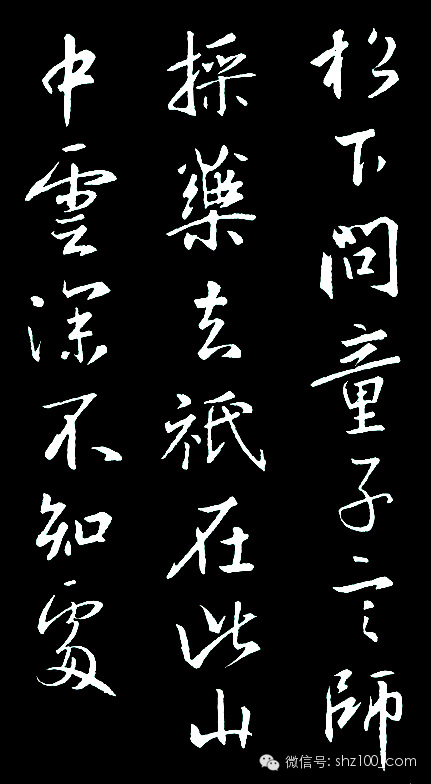 松下問童子言師
採藥去祇在此山
中雲深不知處
微信号: shz100_com